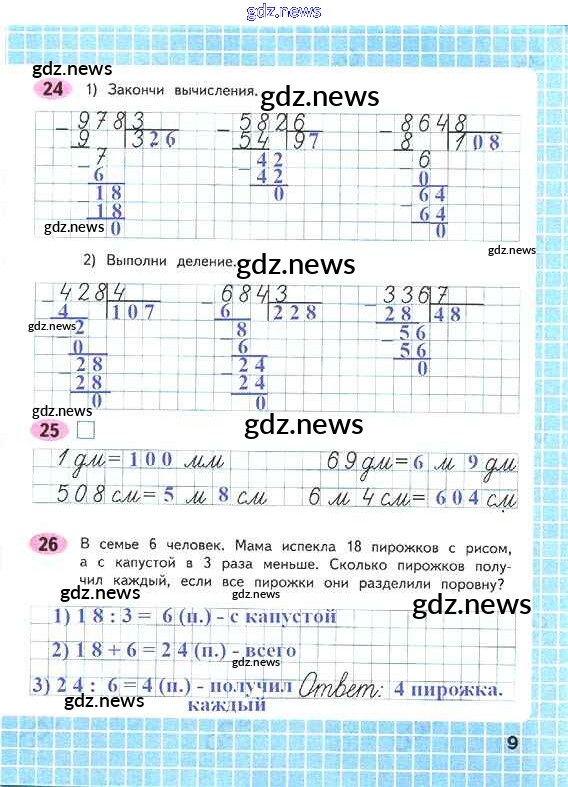 gdz.news
gdz.news
24 1) Закончи вычисления.
gdz.news
978 3 582 6 864 8
9 326 54 97 8 108
7 42 6
6 42 0
18 0 64
18 64
0 0
gdz.news
gdz.news
2) Выполни деление.
gdz.news
428 4 684 3 336 7
4 107 6 228 28 48
gdz.news
2 8 56
0 6 56
28 24 0
28 24
0 0
gdz.news
gdz.news
25
1 дм = 100 мм 69 дм = 6 м 9 дм
508 см = 5 м 8 см 6 м 4 см = 604 см
gdz.news
26 В семье 6 человек. Мама испекла 18 пирожков с рисом,
а с капустой в 3 раза меньше. Сколько пирожков полу-
чил каждый, если все пирожки они разделили поровну?
gdz.news
gdz.news
1) 18 : 3 = 6 (п.) - с капустой
2) 18 + 6 = 24 (п.) - всего
gdz.news
3) 24 : 6 = 4 (п.) - получил Ответ: 4 пирожка.
каждый
gdz.news
9
gdz.news